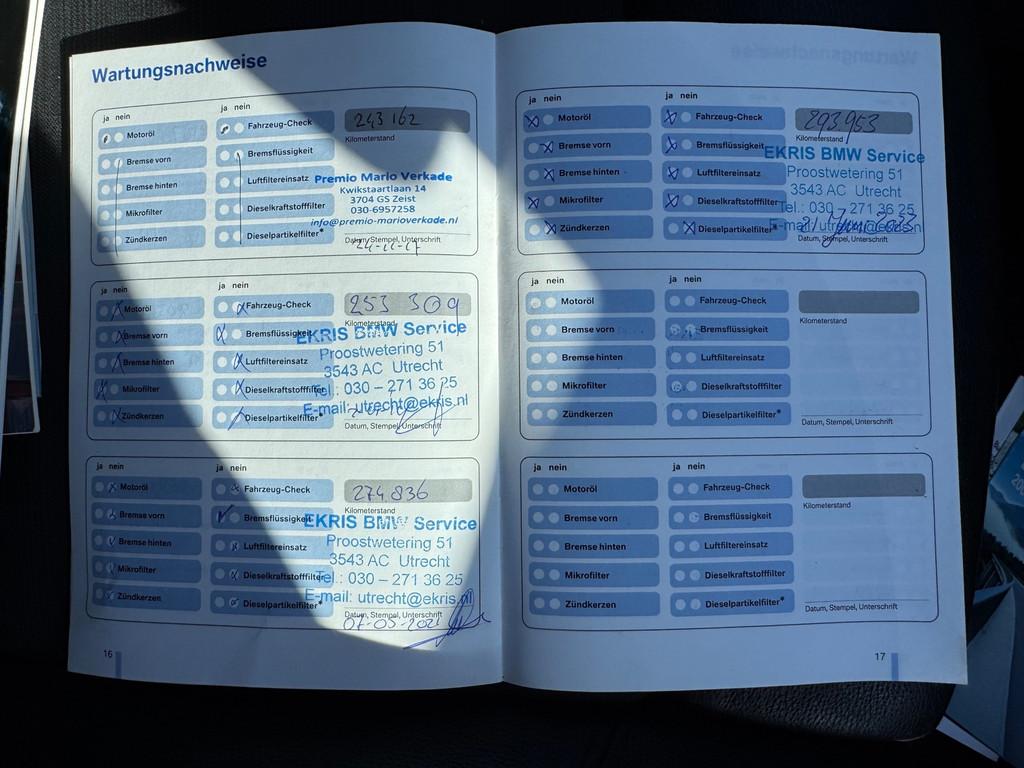 Wartungsnachweise
ja nein
ja nein
Motoröl
Fahrzeug-Check
243 162
Kilometerstand
Bremse vorn
Bremsflüssigkeit
Bremse hinten
Luftfiltereinsatz
Premio Mario Verkade
Kwikstaartlaan 14
3704 GS Zeist
030-6957258
info@premio-marioverkade.nl
Mikrofilter
Dieselkraftstofffilter
Zündkerzen
Dieselpartikelfilter*
Datum, Stempel, Unterschrift
ja nein
ja nein
Motoröl
Fahrzeug-Check
253 309
Kilometerstand
Bremse vorn
Bremsflüssigkeit
EKRIS BMW Service
Proostwetering 51
3543 AC Utrecht
Tel.: 030 – 271 36 25
E-mail: utrecht@ekris.nl
Bremse hinten
Luftfiltereinsatz
Mikrofilter
Dieselkraftstofffilter
Zündkerzen
Dieselpartikelfilter*
Datum, Stempel, Unterschrift
ja nein
ja nein
Motoröl
Fahrzeug-Check
274.836
Kilometerstand
Bremse vorn
Bremsflüssigkeit
EKRIS BMW Service
Proostwetering 51
3543 AC Utrecht
Tel.: 030 – 271 36 25
E-mail: utrecht@ekris.nl
Bremse hinten
Luftfiltereinsatz
Mikrofilter
Dieselkraftstofffilter
Zündkerzen
Dieselpartikelfilter*
Datum, Stempel, Unterschrift
07-05-2021
16
ja nein
ja nein
Motoröl
Fahrzeug-Check
293.953
Kilometerstand
Bremse vorn
Bremsflüssigkeit
EKRIS BMW Service
Proostwetering 51
3543 AC Utrecht
Tel.: 030 – 271 36 25
E-mail: utrecht@ekris.nl
Bremse hinten
Luftfiltereinsatz
Mikrofilter
Dieselkraftstofffilter
Zündkerzen
Dieselpartikelfilter*
Datum, Stempel, Unterschrift
ja nein
ja nein
Motoröl
Fahrzeug-Check
Kilometerstand
Bremse vorn
Bremsflüssigkeit
Bremse hinten
Luftfiltereinsatz
Mikrofilter
Dieselkraftstofffilter
Zündkerzen
Dieselpartikelfilter*
Datum, Stempel, Unterschrift
ja nein
ja nein
Motoröl
Fahrzeug-Check
Kilometerstand
Bremse vorn
Bremsflüssigkeit
Bremse hinten
Luftfiltereinsatz
Mikrofilter
Dieselkraftstofffilter
Zündkerzen
Dieselpartikelfilter*
Datum, Stempel, Unterschrift
17